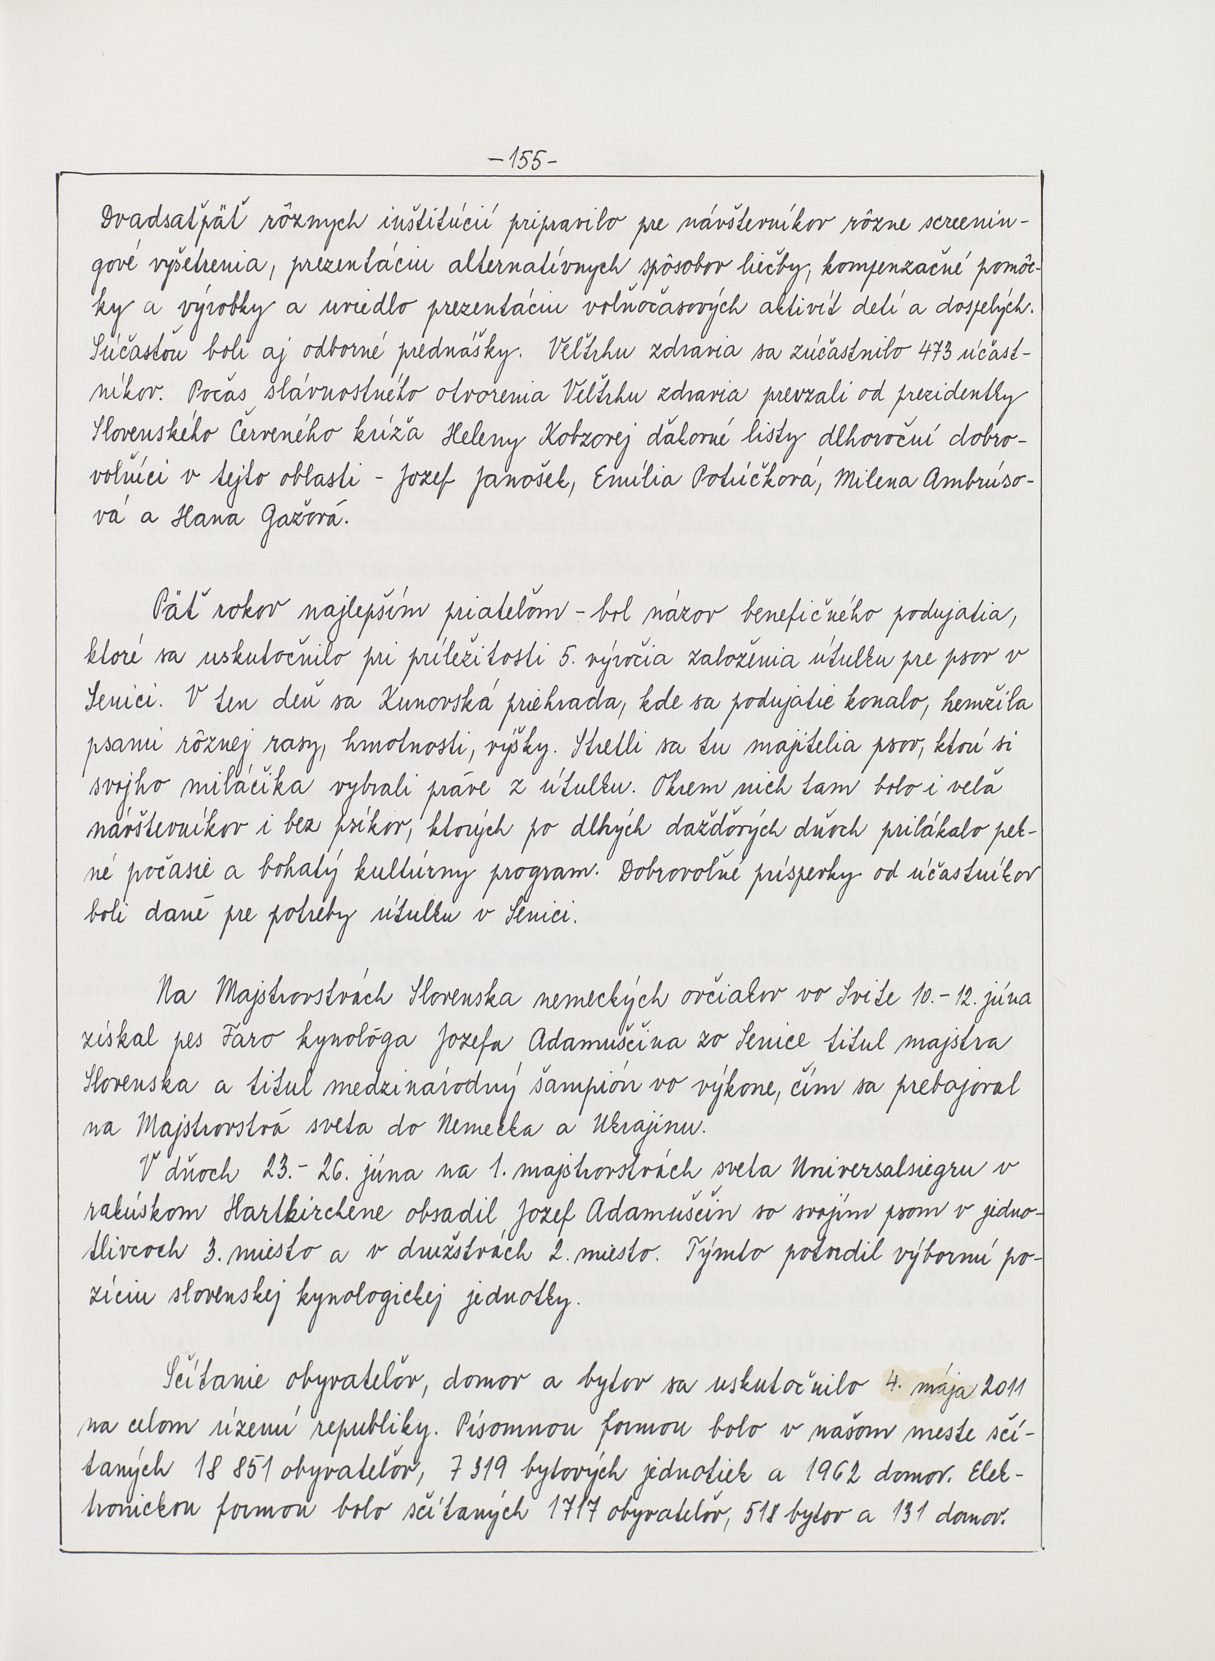 -155-
Dvadsaťpäť rôznych inštitúcií pripravilo pre návštevníkov rôzne screenin-
gové vyšetrenia, prezentáciu alternatívnych spôsobov liečby, kompenzačné pomôc-
ky a výrobky a uviedlo prezentáciu voľnočasových aktivít detí a dospelých.
Súčasťou boli aj odborné prednášky. Veľtrhu zdravia sa zúčastnilo 473 účast-
níkov. Počas slávnostného otvorenia Veľtrhu zdravia prevzali od prezidentky
Slovenského Červeného kríža Heleny Kobzovej ďakovné listy dlhoroční dobro-
voľníci v tejto oblasti - Jozef Janošek, Emília Potúčková, Milena Ambrúso-
vá a Hana Gažová.
Päť rokov najlepším priateľom - bol názov benefičného podujatia,
ktoré sa uskutočnilo pri príležitosti 5. výročia založenia útulku pre psov v
Senici. V ten deň sa Kunovská priehrada, kde sa podujatie konalo, hemžila
psami rôznej rasy, hmotnosti, výšky. Stretli sa tu majitelia psov, ktorí si
svojho miláčika vybrali práve z útulku. Okrem nich tam bolo i veľa
návštevníkov i bez psíkov, ktorých po dlhých daždových dňoch prilákalo pek-
né počasie a bohatý kultúrny program. Dobrovoľné príspevky od účastníkov
boli dané pre potreby útulku v Senici.
Na Majstrovstvách Slovenska nemeckých ovčiakov vo Svite 10.-12. júna
získal pes Faro kynológa Jozefa Adamuščina zo Senice titul majstra
Slovenska a titul medzinárodný šampión vo výkone, čím sa prebojoval
na Majstrovstvá sveta do Nemecka a Ukrajinu.
V dňoch 23.- 26. júna na 1. majstrovstvách sveta Universalsiegru v
rakúskom Hartkirchene obsadil Jozef Adamuščin so svojím psom v jedno-
tlivcoch 3. miesto a v družstvách 2. miesto. Týmto potvrdil výbornú po-
zíciu slovenskej kynologickej jednotky.
Sčítanie obyvateľov, domov a bytov sa uskutočnilo 4. mája 2011
na celom území republiky. Písomnou formou bolo v našom meste sčí-
taných 18 851 obyvateľov, 7 319 bytových jednotiek a 1962 domov. Elek-
tronickou formou bolo sčítaných 1717 obyvateľov, 518 bytov a 131 domov.